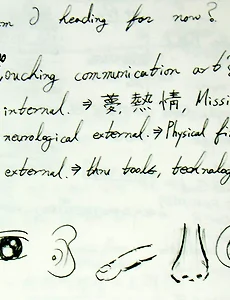 m I heading for now?
ouching communication art?
internal. ⇒ 夢, 熱情, Missi
neurological external. ⇒ Physical fi
external. ⇒ thru tools, technolog